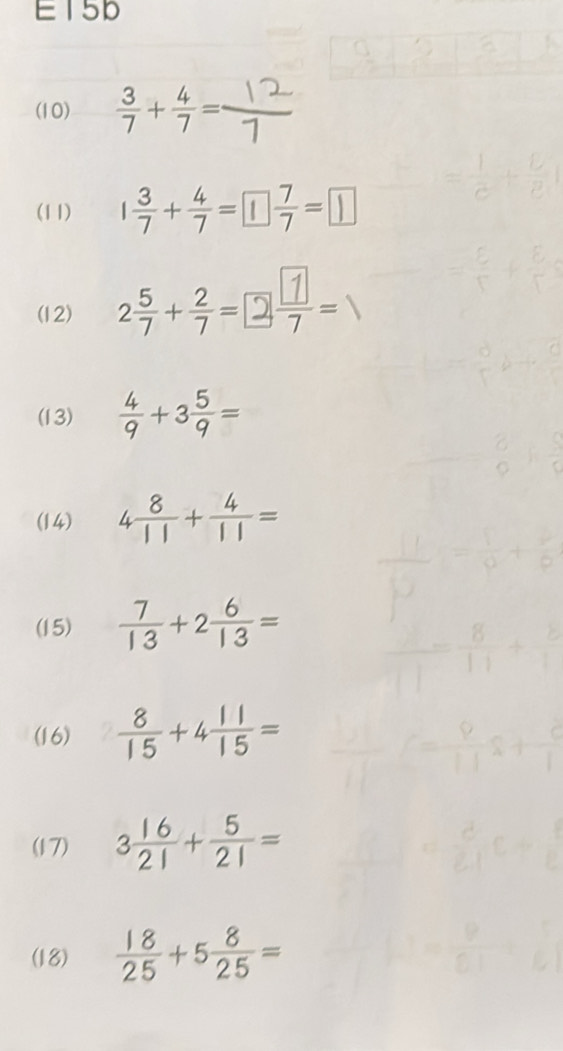 E15b
(10) 3/7 + 4/7 = 12/7
(11) 1 3/7 + 4/7 = 1 7/7 = 1
(12) 2 5/7 + 2/7 = 2 7/7 = 1
(13) 4/9 + 3 5/9 =
(14) 4 8/11 + 4/11 =
(15) 7/13 + 2 6/13 =
(16) 8/15 + 4 11/15 =
(17) 3 16/21 + 5/21 =
(18) 18/25 + 5 8/25 =